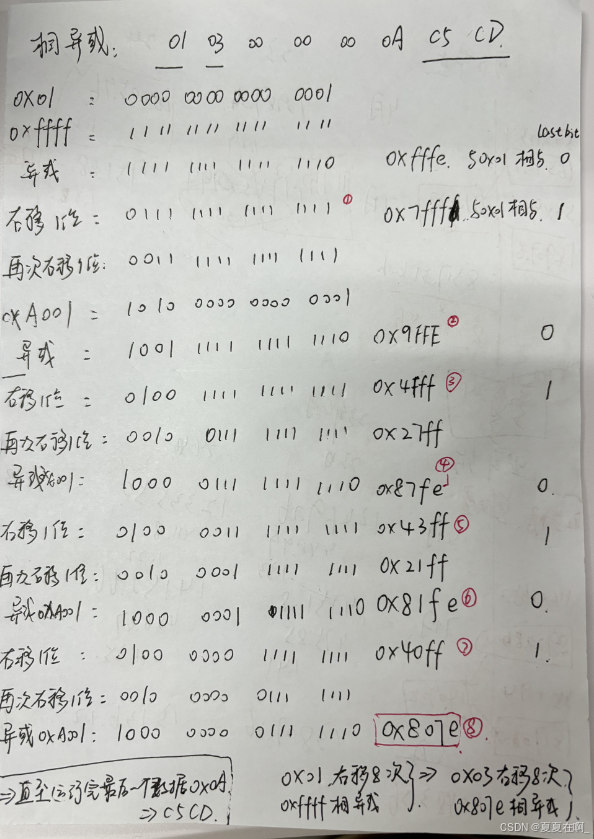 相异或: 01 03 00 00 00 0A C5 CD.
0X01 : 0000 0000 0000 0001
0xffff = 1111 1111 1111 1111
last bit
异或 : 1111 1111 1111 1110 0xfffe. 与0x01相与. 0
右移1位 = 0111 1111 1111 1111 ① 0x7fff 与0x01相与. 1
再次右移1位: 0011 1111 1111 1111
0xA001 = 1010 0000 0000 0001
异或 = 1001 1111 1111 1110 0x9FFE ② 0
右移1位 = 0100 1111 1111 1111 0x4fff ③ 1
再次右移1位: 0010 0111 1111 1111 0x27ff
异或A001: 1000 0111 1111 1110 0x87fe ④ 0.
右移1位: 0100 0011 1111 1111 0x43ff ⑤ 1
再次右移1位: 0010 0001 1111 1111 0x21ff
异或0xA001: 1000 0001 1111 1110 0x81fe ⑥ 0.
右移1位: 0100 0000 1111 1111 0x40ff ⑦ 1.
再次右移1位: 0010 0000 0111 1111
异或0xA001: 1000 0000 0111 1110 0x807e ⑧.
⇒直至运行完最后一个数据0x0A.
⇒ C5CD.
0x01 右移8次 } ⇒ 0x03右移8次 }
0xffff相异或 0x807e相异或
CSDN @夏夏在啊_